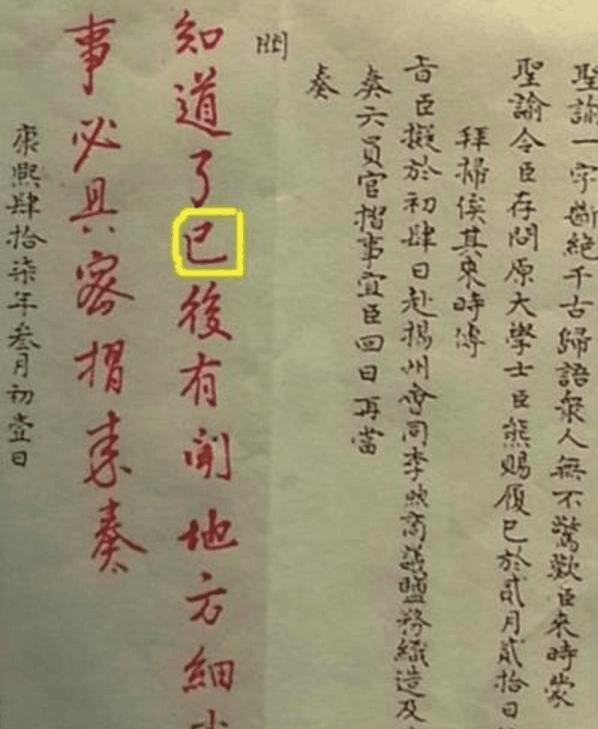 聖諭一字斷絕千古歸語衆人無不驚歎臣來時蒙
聖諭令臣存問原大學士臣熊賜履已於貳月貳拾日
拜掃俟其來時傳
旨臣擬於初肆日赴揚州會同李煦商議鹽務織造及
奏六員官摺事宜臣回日再當
奏
聞
知道了已後有聞地方細
事必具密摺來奏
康熙肆拾柒年叁月初壹日